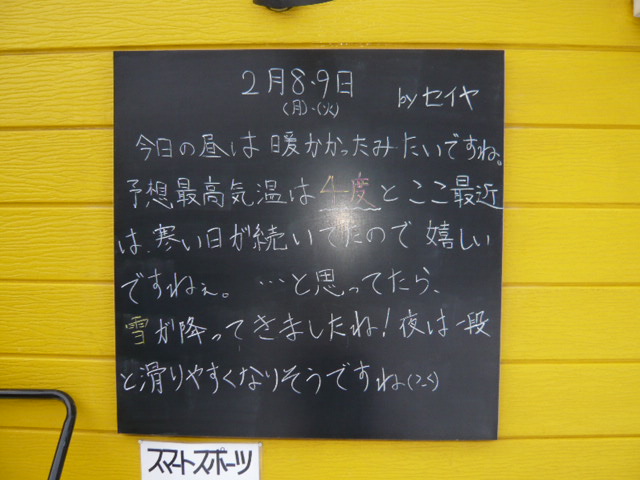 2月8・9日
(月)・(火)
byセイヤ
今日の昼は暖かかったみたいですね。
予想最高気温は4度とここ最近
は、寒い日が続いてたので嬉しい
ですねぇ。…と思ってたら、
雪が降ってきましたね!夜は一段
と滑りやすくなりそうですね
スマートスポーツ